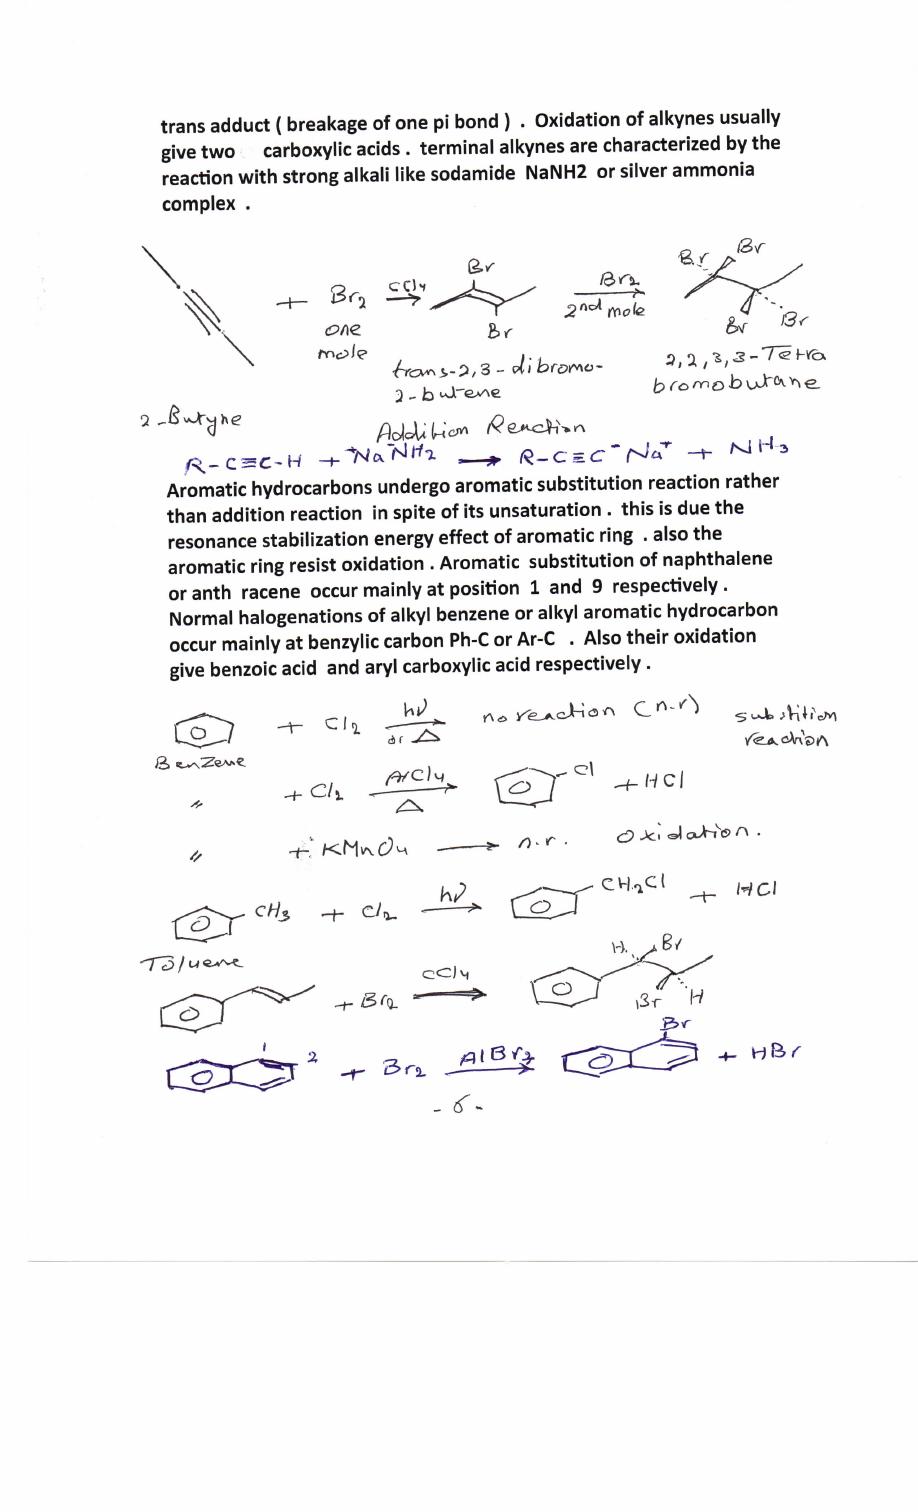 trans adduct ( breakage of one pi bond ) . Oxidation of alkynes usually
give two carboxylic acids . terminal alkynes are characterized by the
reaction with strong alkali like sodamide NaNH2 or silver ammonia
complex .
Br Br
Br
+ Br2 CCl4 Br2
one 2nd mole
mole Br Br Br
trans-2,3-dibromo-
2-butene
2,2,3,3-Tetra
bromobutane
2-Butyne
Addition Reaction
R-C≡C-H + +Na-NH2 → R-C≡C- Na+ + NH3
Aromatic hydrocarbons undergo aromatic substitution reaction rather
than addition reaction in spite of its unsaturation . this is due the
resonance stabilization energy effect of aromatic ring . also the
aromatic ring resist oxidation . Aromatic substitution of naphthalene
or anth racene occur mainly at position 1 and 9 respectively .
Normal halogenations of alkyl benzene or alkyl aromatic hydrocarbon
occur mainly at benzylic carbon Ph-C or Ar-C . Also their oxidation
give benzoic acid and aryl carboxylic acid respectively .
+ Cl2 hν or Δ no reaction (n.r) substition
reaction
Benzene
" + Cl2 AlCl4 Δ Cl + HCl
" + KMnO4 → n.r. oxidation.
CH3 + Cl2 hν CH2Cl + HCl
Toluene
+ Br2 CCl4 H Br Br H
1 2 + Br2 AlBr3 Br + HBr
- 6 -